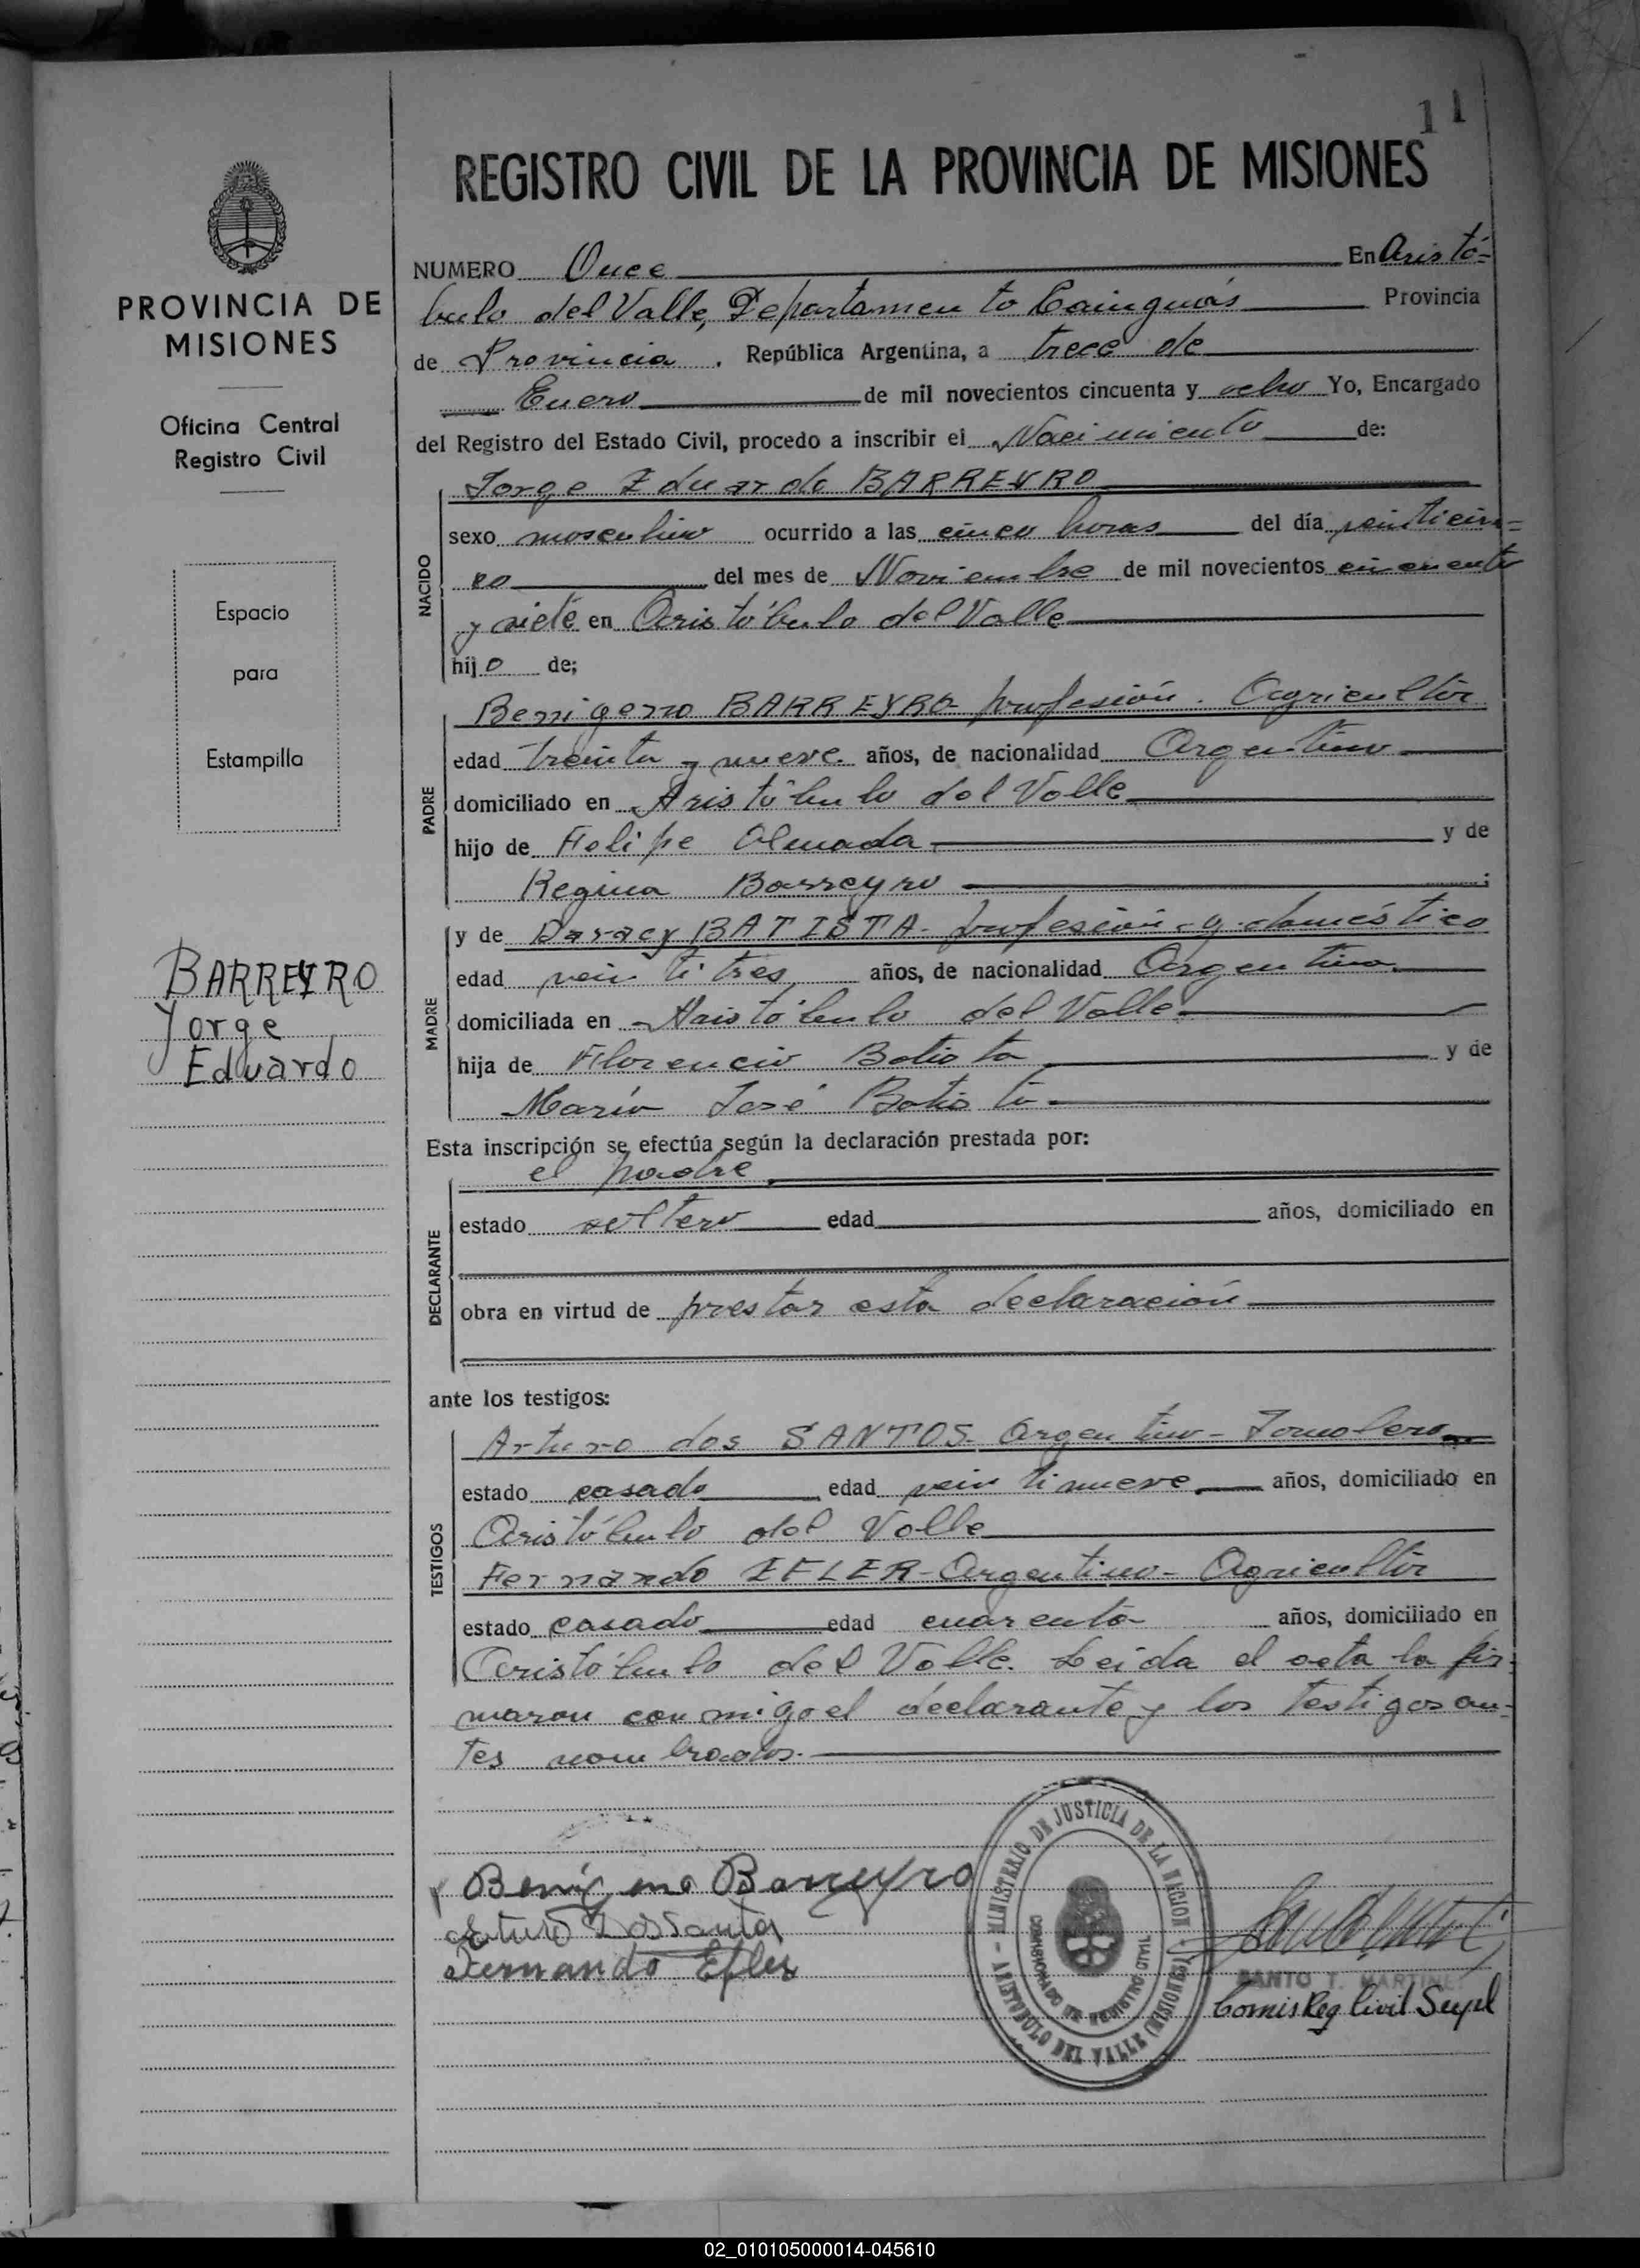 11
REGISTRO CIVIL DE LA PROVINCIA DE MISIONES
PROVINCIA DE
MISIONES
Oficina Central
Registro Civil
Espacio
para
Estampilla
BARREYRO
Jorge
Eduardo
NUMERO Once En Aristó=
bulo del Valle, Departamento Cainguás Provincia
de Provincia. República Argentina, a trece de
Enero de mil novecientos cincuenta y ocho Yo, Encargado
del Registro del Estado Civil, procedo a inscribir el Nacimiento de:
NACIDO
Jorge Eduardo BARREYRO
sexo masculino ocurrido a las cinco horas del día veinticin=
co del mes de Noviembre de mil novecientos cincuenta
y siete en Aristóbulo del Valle
hijo de;
PADRE
Benigeno BARREYRO profesión. Agricultor
edad treinta y nueve años, de nacionalidad Argentino
domiciliado en Aristóbulo del Valle
hijo de Felipe Almada y de
Regina Barreyro ;
MADRE
y de Daracy BATISTA- profesión q. doméstico
edad veintitres años, de nacionalidad Argentina
domiciliada en Aristóbulo del Valle
hija de Florencio Batista y de
María José Batista
Esta inscripción se efectúa según la declaración prestada por:
DECLARANTE
el padre
estado soltero edad años, domiciliado en
obra en virtud de prestar esta declaración
ante los testigos:
TESTIGOS
Arturo dos SANTOS- Argentino- Jornalero
estado casado edad veintinueve años, domiciliado en
Aristóbulo del Valle
Fernando EFLER- Argentino- Agricultor
estado casado edad cuarenta años, domiciliado en
Aristóbulo del Valle. Leida el acta la fir=
maron conmigo el declarante y los testigos an=
tes nombrados.
Benigeno Barreyro
Arturo Dos Santos
Fernando Efler
MINISTERIO DE JUSTICIA DE LA NACION
ARISTOBULO DEL VALLE (MISIONES)
COMISIONADO DE REGISTRO CIVIL
SANTO T. MARTINEZ
Comis Reg Civil Supl
02_010105000014-045610